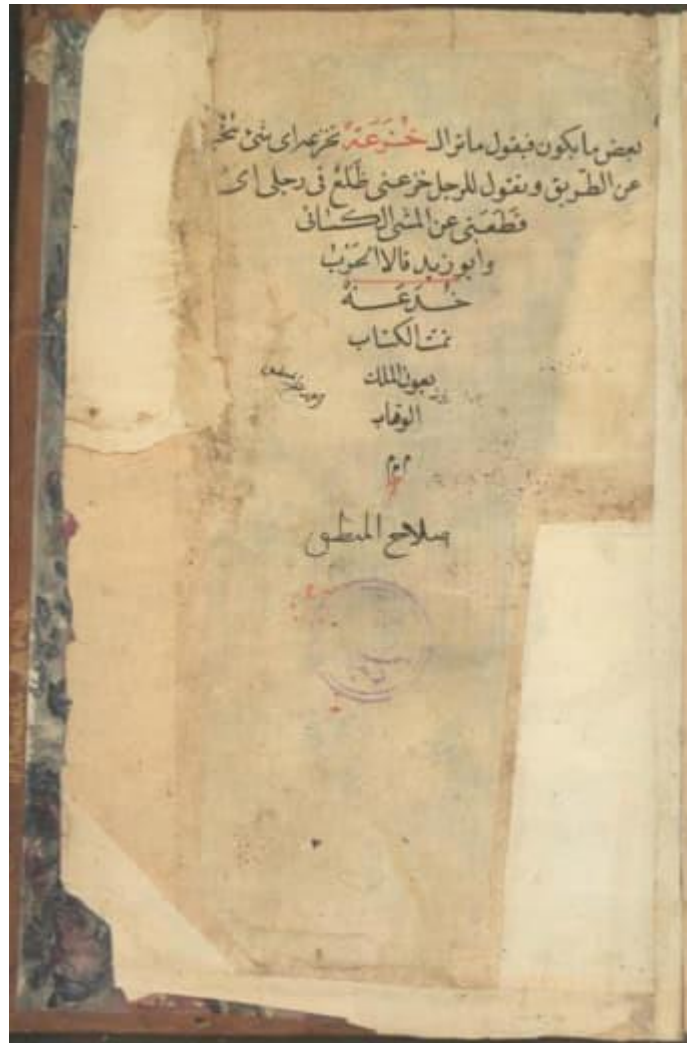 بعض ما يكون فيقول ما تزال خُزَعَةٌ تخزعه اى شئ
عن الطّريق وتقول للرجل خزعنى ظَلْعٌ فى رجلى اى
قَطَعَنى عن المشى الكسائى
وابو زيد قالا الحَرْبُ
خُدَعَةٌ
تمت الكتاب
بعون الملك
الوهاب
م م م
صلاح المنطق